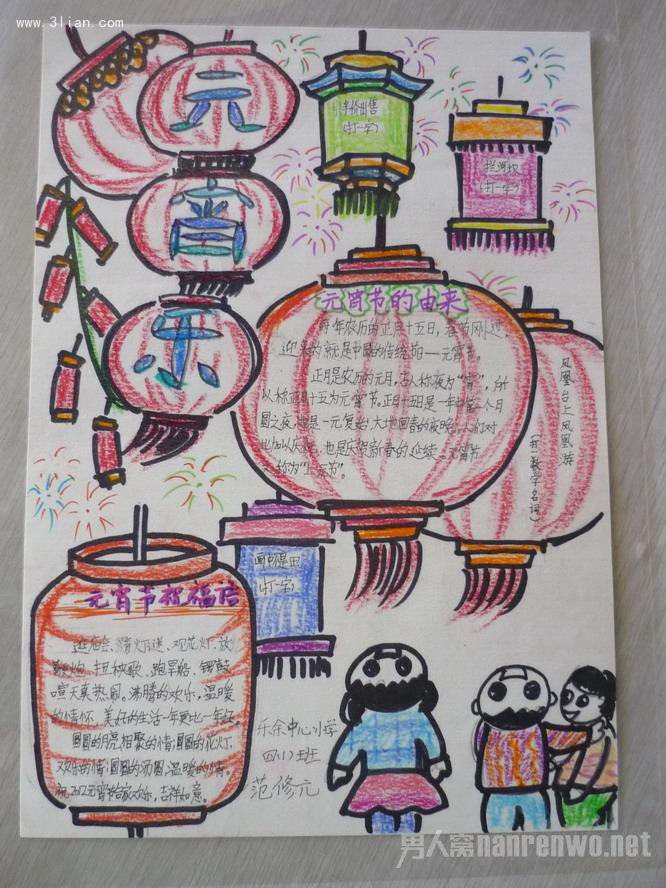 www.3lian.com
元
宵
乐
半价出售
(打一字)
拦河坝
(打一字)
元宵节的由来
每年农历的正月十五日，春节刚过，
迎来的就是中国的传统节——元宵节。
正月是农历的元月，古人称夜为“宵”，所
以称正月十五为元宵节。正月十五日是一年中第一个月
圆之夜，也是一元复始，大地回春的夜晚，人们对
此加以庆祝，也是庆贺新春的延续。元宵节
又称为“上元节”。
凤凰台上凤凰游
(打一数学名词)
画中是田
(打一字)
元宵节祝福语
逛庙会、猜灯谜、观花灯、放
鞭炮、扭秧歌、跑旱船、锣鼓
喧天真热闹，沸腾的欢乐，温暖
的情怀，美好的生活一年更比一年好。
圆圆的月亮，相聚的情；圆圆的花灯，
欢乐的情；圆圆的汤圆，温暖的情。
祝2012元宵节阖家欢乐，吉祥如意。
乐余中心小学
四(1)班
范修元
男人窝nanrenwo.net